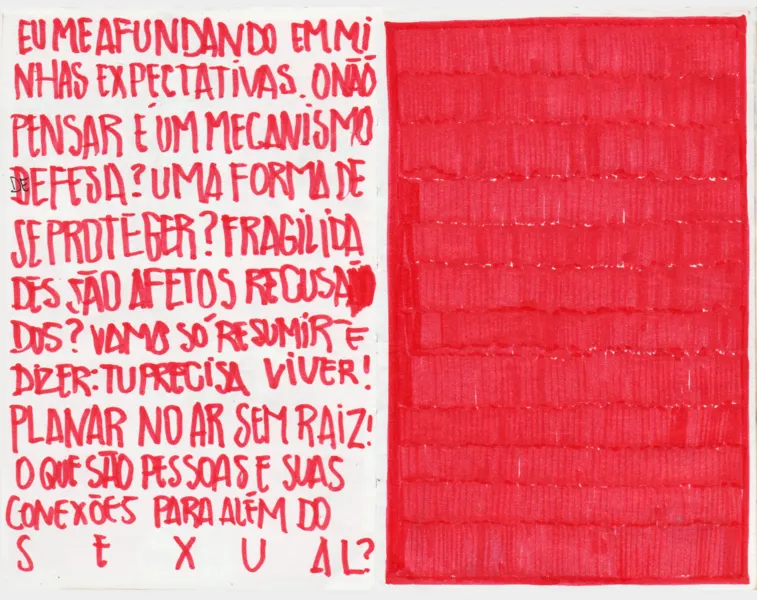 EU ME AFUNDANDO EM MI
NHAS EXPECTATIVAS. O NÃO
PENSAR É UM MECANISMO
DE DEFESA? UMA FORMA DE
SE PROTEGER? FRAGILIDA
DES SÃO AFETOS RECUSA
DOS? VAMO SÓ RESUMIR E
DIZER: TU PRECISA VIVER!
PLANAR NO AR SEM RAIZ!
O QUE SÃO PESSOAS E SUAS
CONEXÕES PARA ALÉM DO
S E X U A L?